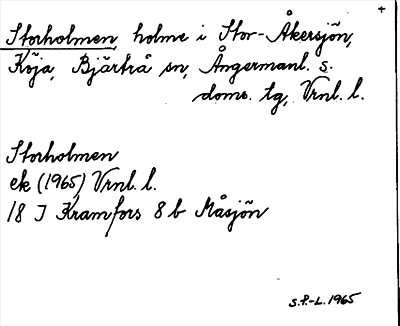 +
Storholmen, holme i Stor-Åkersjön,
Köja, Bjärtrå sn, Ångermanl. s.
doms. tg, Vrnl. l.
Storholmen
ek (1965) Vrnl. l.
18 I Kramfors 8 b Måsjön
S.F.-L. 1965